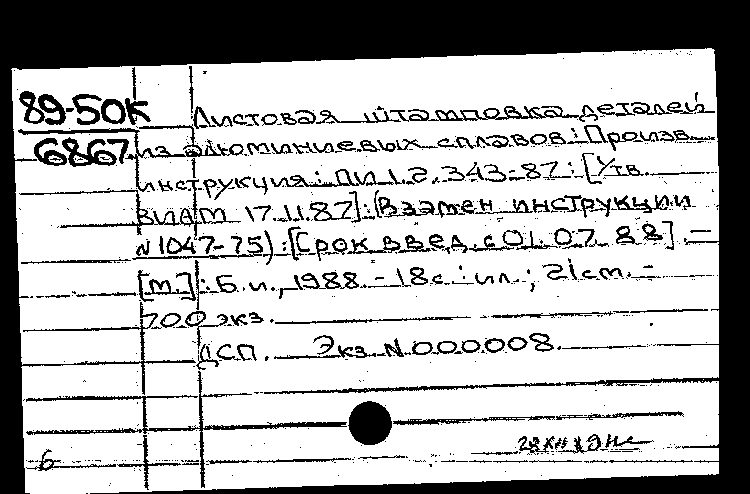 89-50К
6867
Листовая штамповка деталей
из алюминиевых сплавов : Произв.
инструкция : ПИ 1.2.343-87 : [Утв.
ВИАМ 17.11.87] : (Взамен инструкции
N 1047-75) : [Срок введ. с 01.07.88]. —
[М.] : Б.и., 1988. - 18с. : ил. ; 21см. -
700 экз.
ДСП. Экз. N 000008.
6